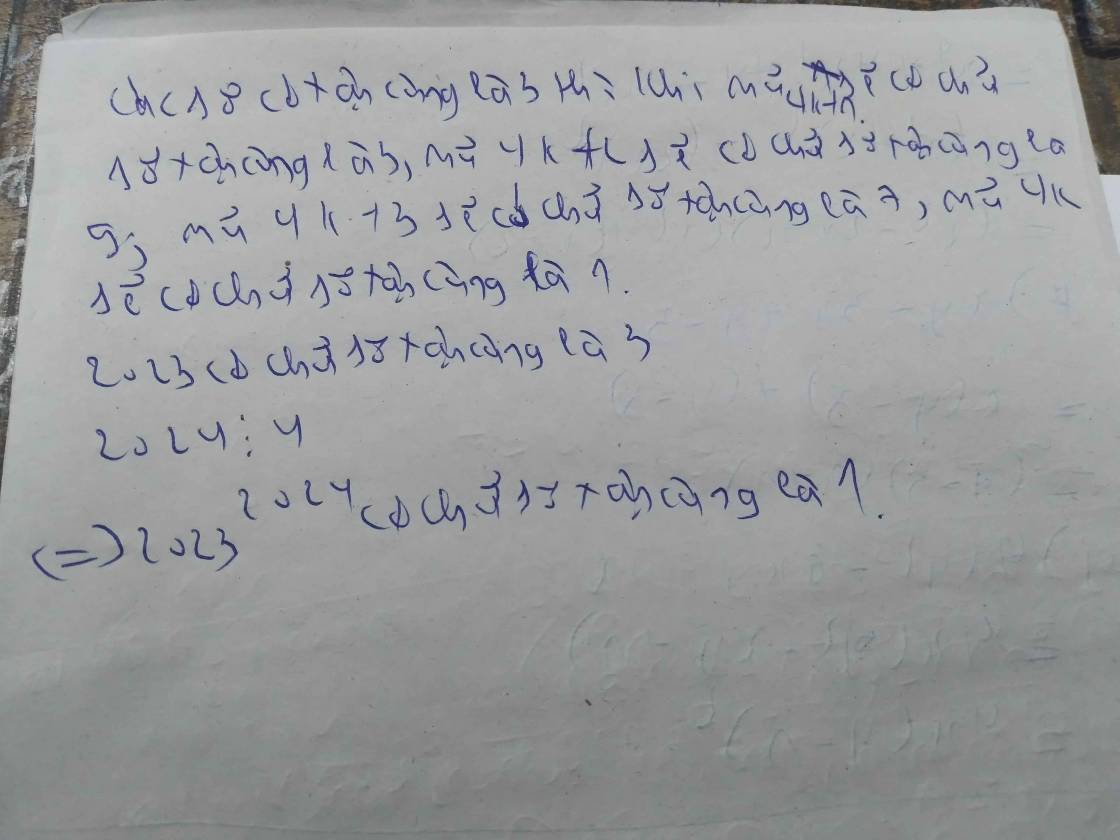 Các số có tận cùng là 3 thì khi mũ 4k+1 sẽ có chữ
số tận cùng là 3, mũ 4k+2 sẽ có chữ số tận cùng là
9; mũ 4k+3 sẽ có chữ số tận cùng là 7, mũ 4k
sẽ có chữ số tận cùng là 1.
2023 có chữ số tận cùng là 3
2024 ⋮ 4
(=) 2023^2024 có chữ số tận cùng là 1.